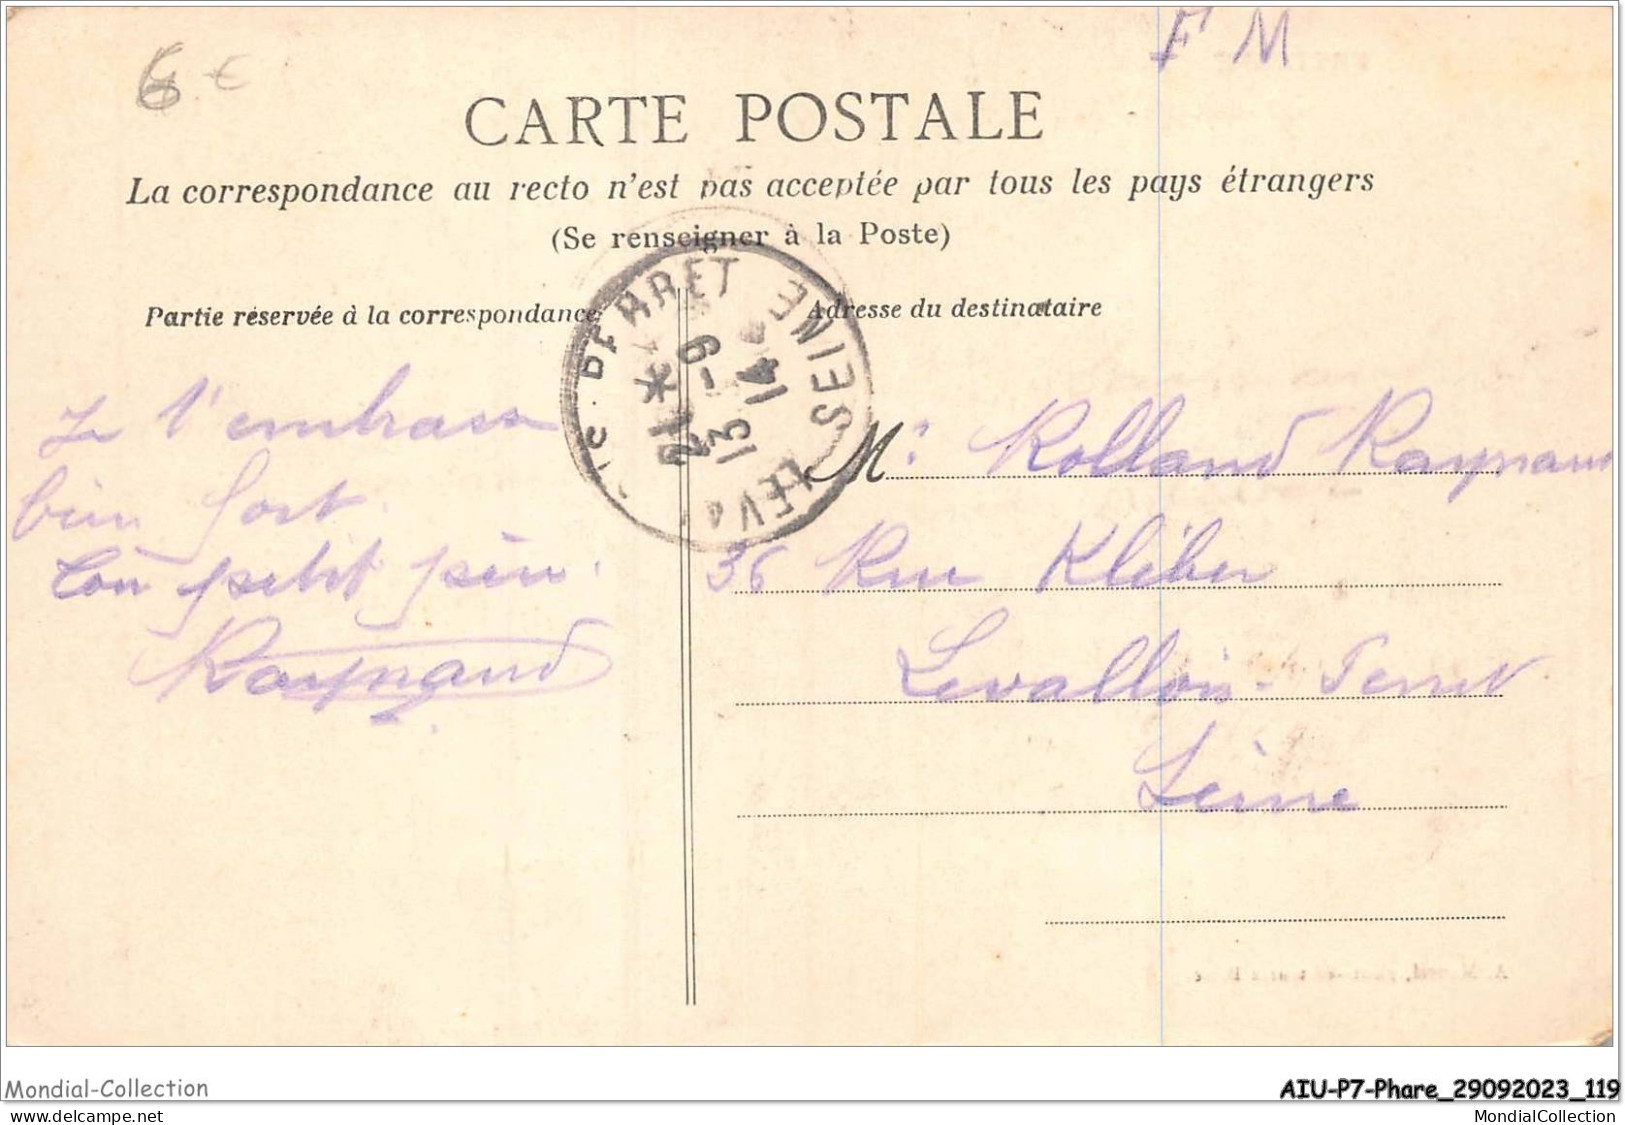 6 €
F M
CARTE POSTALE
La correspondance au recto n'est pas acceptée par tous les pays étrangers
(Se renseigner à la Poste)
Partie réservée à la correspondance
Adresse du destinataire
PERRET SEINE
LEVA
21 * -9
13 14
Je t'embrasse
bien fort.
Ton petit père.
Raynaud
M. Rolland Raynaud
36 Rue Kléber
Levallois-Perret
Seine
Mondial-Collection
AIU-P7-Phare_29092023_119
www.delcampe.net
MondialCollection